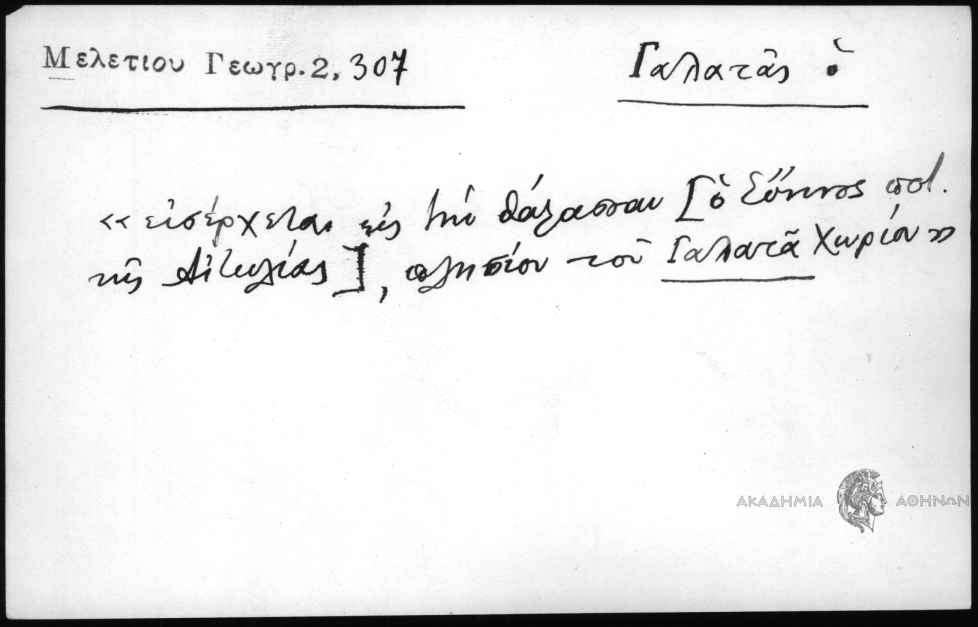 Μελετιου Γεωγρ. 2, 307
Γαλατᾶς ὁ
«εἰσέρχεται εἰς τὴν θάλασσαν [ὁ Εὔηνος ποτ.
τῆς Αἰτωλίας], πλησίον τοῦ Γαλατᾶ χωρίου»
ΑΚΑΔΗΜΙΑ ΑΘΗΝΩΝ